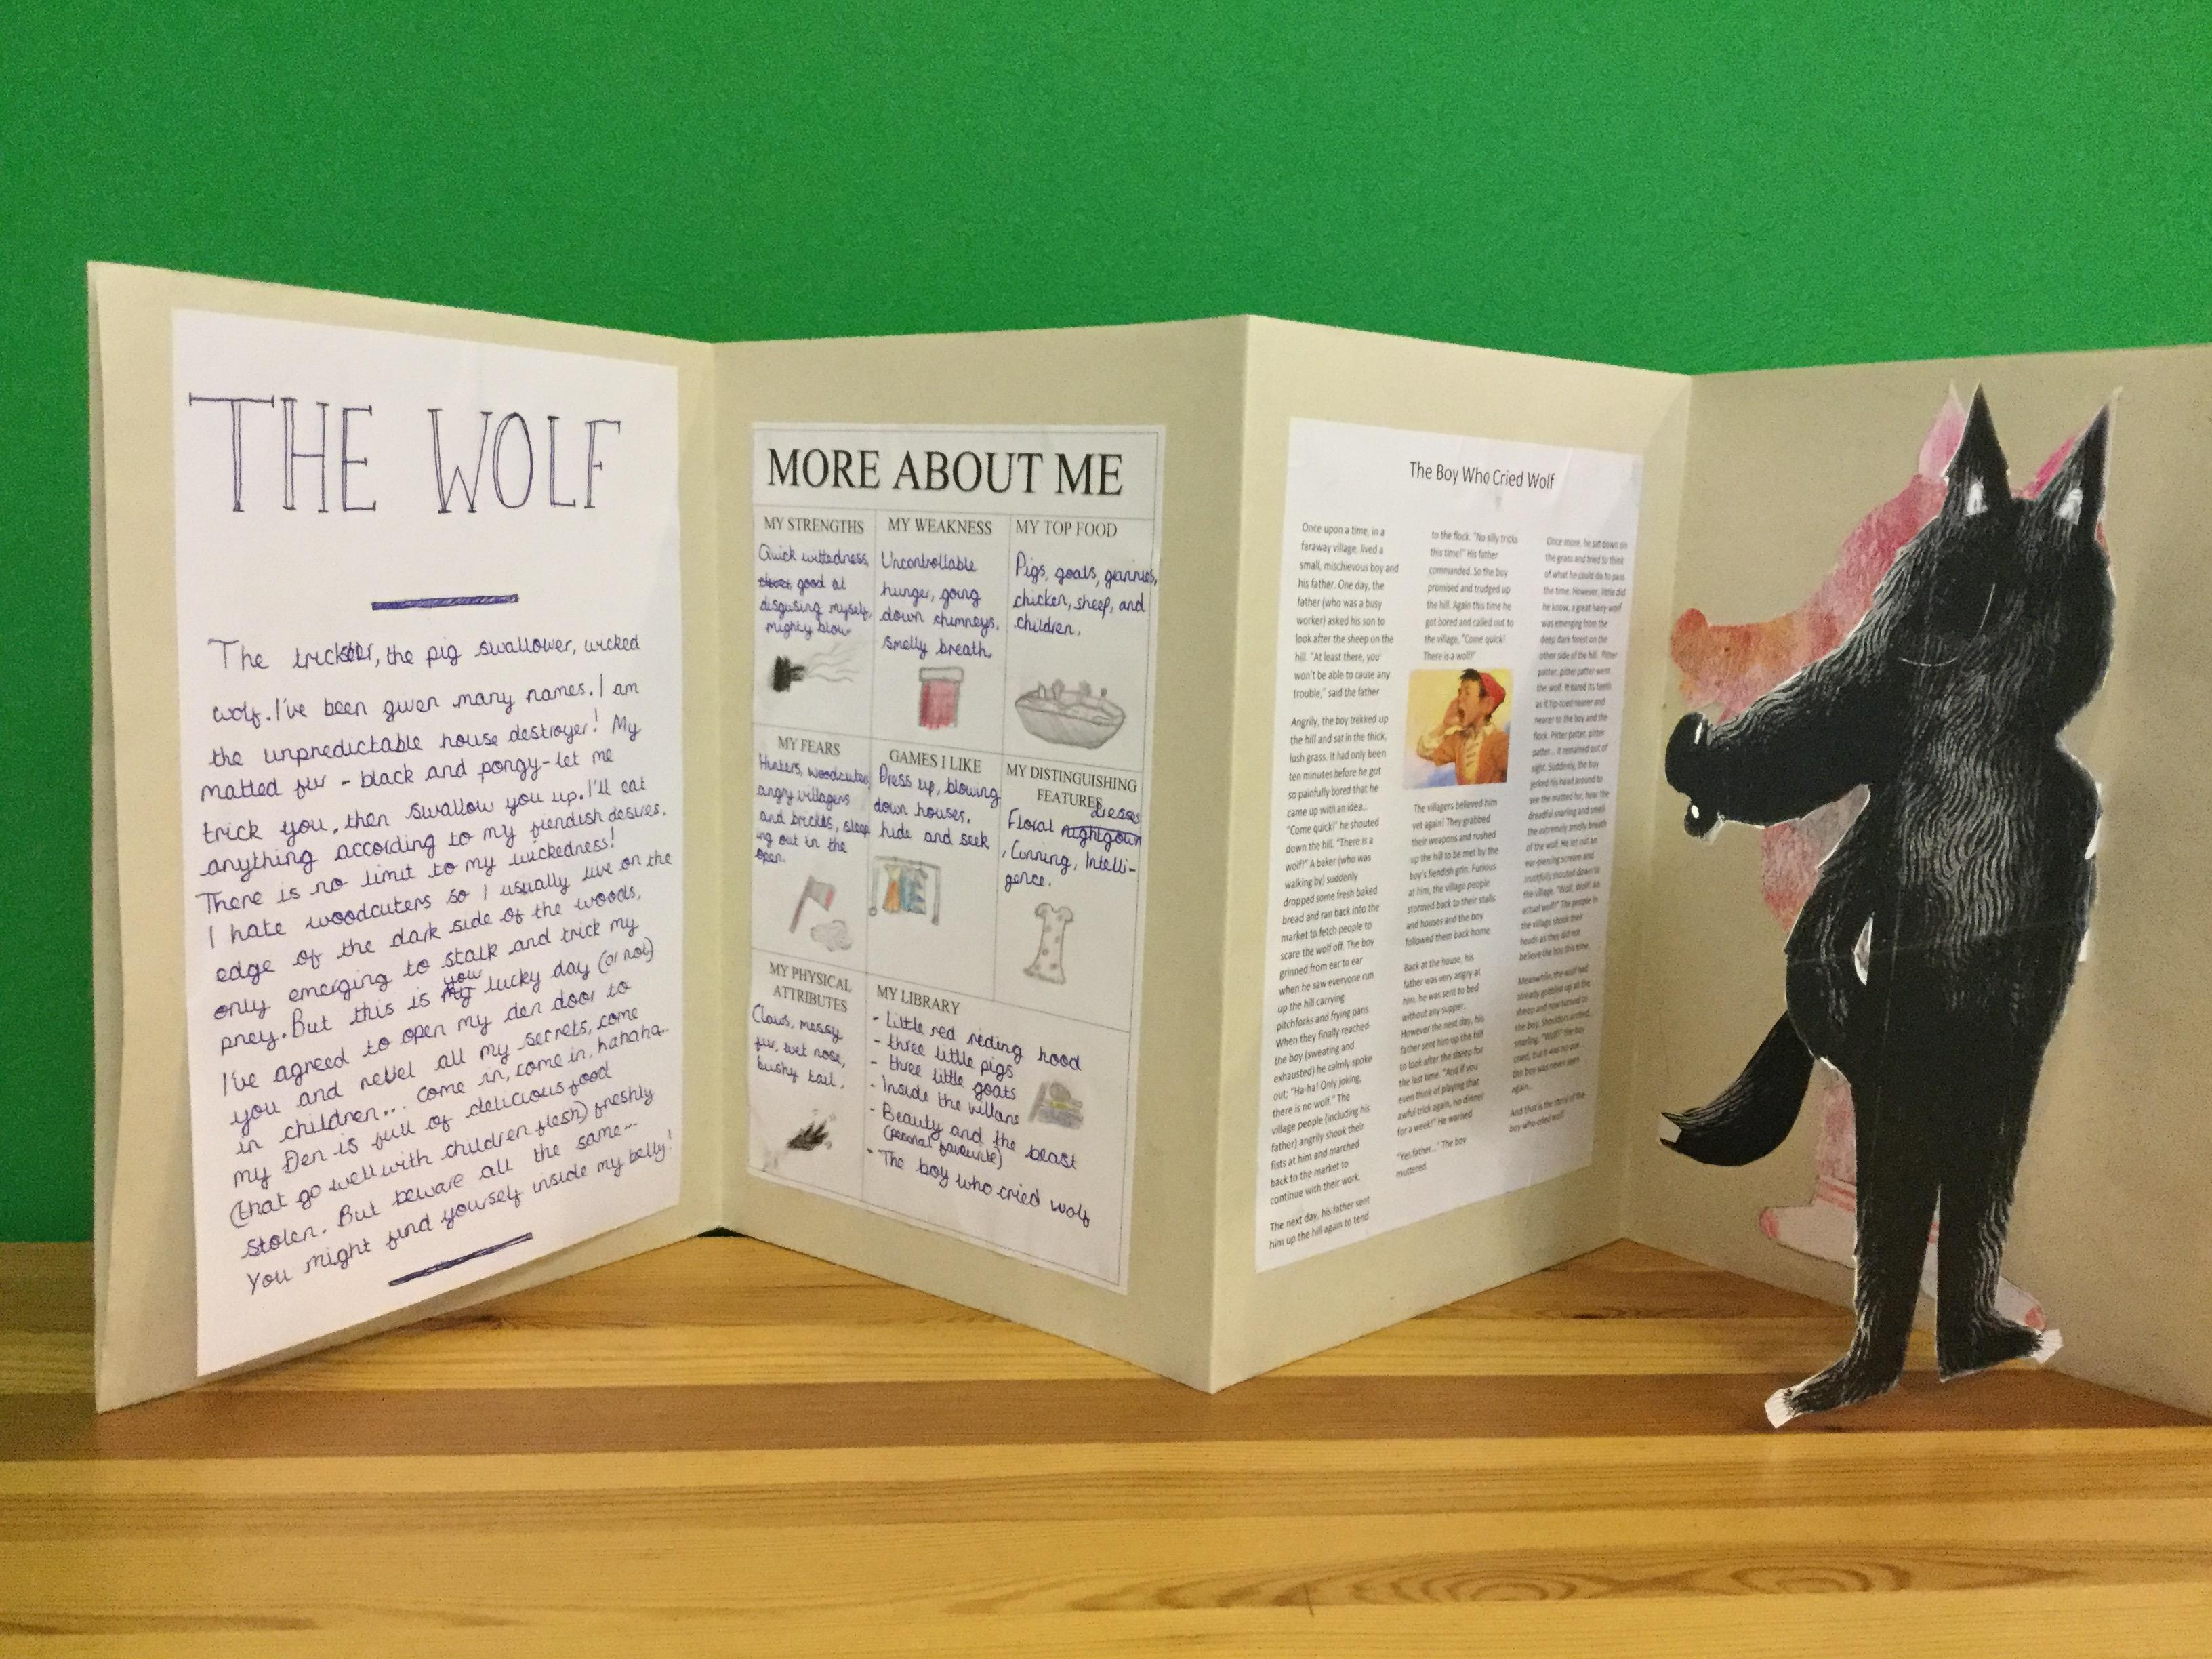 THE WOLF
The trickster, the pig swallower, wicked
wolf. I've been given many names. I am
the unpredictable house destroyer! My
matted fur - black and pongy - let me
trick you, then swallow you up. I'll eat
anything according to my fiendish desires.
There is no limit to my wickedness!
I hate woodcuters so I usually live on the
edge of the dark side of the woods,
only emerging to stalk and trick my
prey. But this is my your lucky day (or not)
I've agreed to open my den door to
you and revel all my secrets, come
in children... come in, come in, hahaha...
my Den is full of delicious food
(that go well with children flesh) freshly
stolen. But beware all the same...
You might find yourself inside my belly!
MORE ABOUT ME
MY STRENGTHS
Quick wittedness,
clever, good at
disgusing myself,
mighty blow
MY WEAKNESS
Uncontrollable
hunger, going
down chimneys,
smelly breath.
MY TOP FOOD
Pigs, goats, grannies,
chicken, sheep, and
children.
MY FEARS
Hunters, woodcuters,
angry villagers
and bricks, sleep
ing out in the
open.
GAMES I LIKE
Dress up, blowing
down houses,
hide and seek
MY DISTINGUISHING
FEATURES
dresses
Floral nightgown
, Cunning, Intelli-
gence.
MY PHYSICAL
ATTRIBUTES
Claws, messy
fur, wet nose,
bushy tail.
MY LIBRARY
- Little red reding hood
- three little pigs
- three little goats
- Inside the villans
- Beauty and the beast
(personal favourite)
- The boy who cried wolf
The Boy Who Cried Wolf
Once upon a time, in a
faraway village, lived a
small, mischievous boy and
his father. One day, the
father (who was a busy
worker) asked his son to
look after the sheep on the
hill. "At least there, you
won't be able to cause any
trouble," said the father
Angrily, the boy trekked up
the hill and sat in the thick,
lush grass. It had only been
ten minutes before he got
so painfully bored that he
came up with an idea...
"Come quick!" he shouted
down the hill. "There is a
wolf!" A baker (who was
walking by) suddenly
dropped some fresh baked
bread and ran back into the
market to fetch people to
scare the wolf off. The boy
grinned from ear to ear
when he saw everyone run
up the hill carrying
pitchforks and frying pans
When they finally reached
the boy (sweating and
exhausted) he calmly spoke
out; "Ha-ha! Only joking,
there is no wolf." The
village people (including his
father) angrily shook their
fists at him and marched
back to the market to
continue with their work.
The next day, his father sent
him up the hill again to tend
to the flock. "No silly tricks
this time!" His father
commanded. So the boy
promised and trudged up
the hill. Again this time he
got bored and called out to
the village, "Come quick!
There is a wolf!"
The villagers believed him
yet again! They grabbed
their weapons and rushed
up the hill to be met by the
boy's fiendish grin. Furious
at him, the village people
stormed back to their stalls
and houses and the boy
followed them back home.
Back at the house, his
father was very angry at
him, he was sent to bed
without any supper.
However the next day, his
father sent him up the hill
to look after the sheep for
the last time. "And if you
even think of playing that
awful trick again, no dinner
for a week!" He warned
"Yes father..." The boy
muttered.
Once more, he sat down on
the grass and tried to think
of what he could do to pass
the time. However, little did
he know, a great hairy wolf
was emerging from the
deep dark forest on the
other side of the hill. Pitter
patter, pitter patter went
the wolf. It bared its teeth
as it tip-toed nearer and
nearer to the boy and the
flock. Pitter patter, pitter
patter... it remained out of
sight. Suddenly, the boy
jerked his head around to
see the matted fur, hear the
dreadful snarling and smell
the extremely smelly breath
of the wolf. He let out an
ear-piercing scream and
shouted down to
the village. "Wolf, Wolf! An
actual wolf!" The people in
the village shook their
heads as they did not
believe the boy this time.
Meanwhile, the wolf had
already gobbled up all the
sheep and now turned to
the boy. Shoulders arched,
snarling. "Wolf!" the boy
cried, but it was no use...
the boy was never seen
again...
And that is the story of the
boy who cried wolf